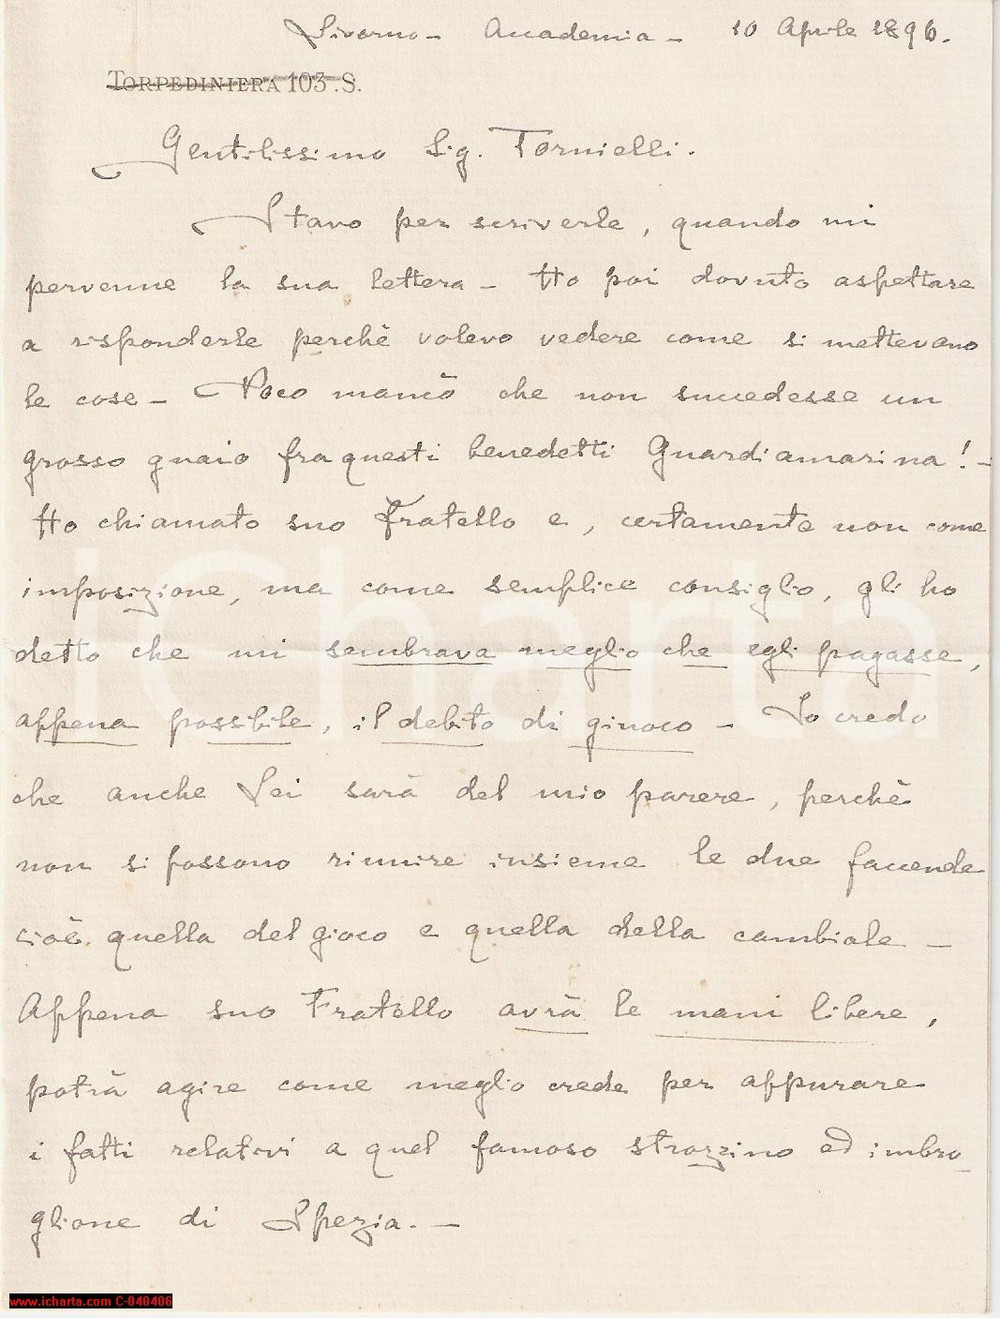 Livorno - Accademia - 10 Aprile 1896.
TORPEDINIERA 103.S.
Gentilissimo Sig. Tornielli.
Stavo per scriverle, quando mi
pervenne la sua lettera - Ho poi dovuto aspettare
a risponderle perchè volevo vedere come si mettevano
le cose - Poco mancò che non succedesse un
grosso guaio fra questi benedetti Guardiamarina! -
Ho chiamato suo Fratello e, certamente non come
imposizione, ma come semplice consiglio, gli ho
detto che mi sembrava meglio che egli pagasse,
appena possibile, il debito di giuoco - Io credo
che anche Lei sarà del mio parere, perchè
non si possono riunire insieme le due faccende
cioè quella del gioco e quella della cambiale -
Appena suo Fratello avrà le mani libere,
potrà agire come meglio crede per appurare
i fatti relativi a quel famoso strozzino ed imbro_
glione di Spezia. -
iCharta
www.icharta.com C-040406